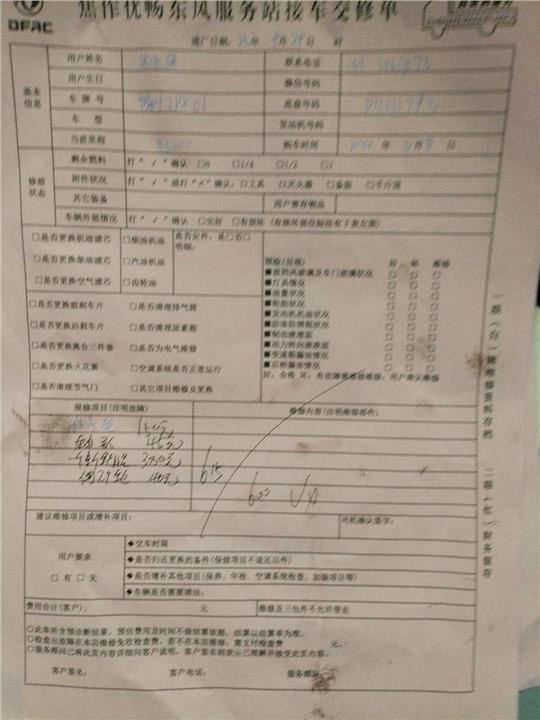 DFAC
焦作优畅东风服务站接车交修单
进厂日期: 年 月 日 时
基本信息
用户姓名 联系电话
用户生日 微信号码
车牌号 底盘号码
车型 发动机号码
当前里程 购车时间 年 月 日
修前状态
剩余燃料 打"√"确认 □0 □1/4 □1/2 □1
附件状况 打"√"或打"×"确认:□工具 □灭火器 □备胎 □千斤顶
其它装备 用户寄存物品
车辆外部情况 打"√"确认 □完好 □有损坏(有损坏部位标注有下表左侧)
□是否更换机油滤芯 □柴油机油 是否定件:是□否□
明细:
□是否更换柴油滤芯 □汽油机油
□是否更换空气滤芯 □齿轮油
预检(目视) 好 坏 维修
■前挡风玻璃及车门玻璃状况
■灯具情况
■油量状况
■轮胎状况
■发动机机油状况
■防冻防锈液状况
■制动液液面
■动力转向液液面
■变速箱漏油情况
■后桥漏油情况
好,合格 坏,有故障需要维修 维修,用户确认维修
□是否更换前刹车片 □是否清理排气筒
□是否更换后刹车片 □是否清理尿素箱
□是否更换离合三件套 □是否为电气维修
□是否更换火花塞 □空调系统是否正常运行
□是否清理节气门 □其它项目维修及更换
报修项目(注明故障) 维修内容(注明维修部件)
150元
45元
40元
615
600
建议维修项目或增补项目: 司机确认签字:
用户要求
□有 □无
◆交车时限
◆是否归还更换的备件(保修项目不退还旧件)
◆是否增补其他项目(保养、年检、空调系统检查、加装项目等)
◆车辆是否需要清洁:
费用合计(客户): 元 维修及三包件不允许带走
○此单所含预诊断结果,预估费用及时间不做结算依据,结算以结算单为准。
○检查出故障在本店维修免收检查费,若不在本店维修,需支付检查费 元。
○服务顾问已将此页内容详细向客户说明,客户签名则表示已理解并接受此页内容。
客户签名: 客户电话: 服务顾问:
一联(白)随维修资料存档 二联(红)财务留存